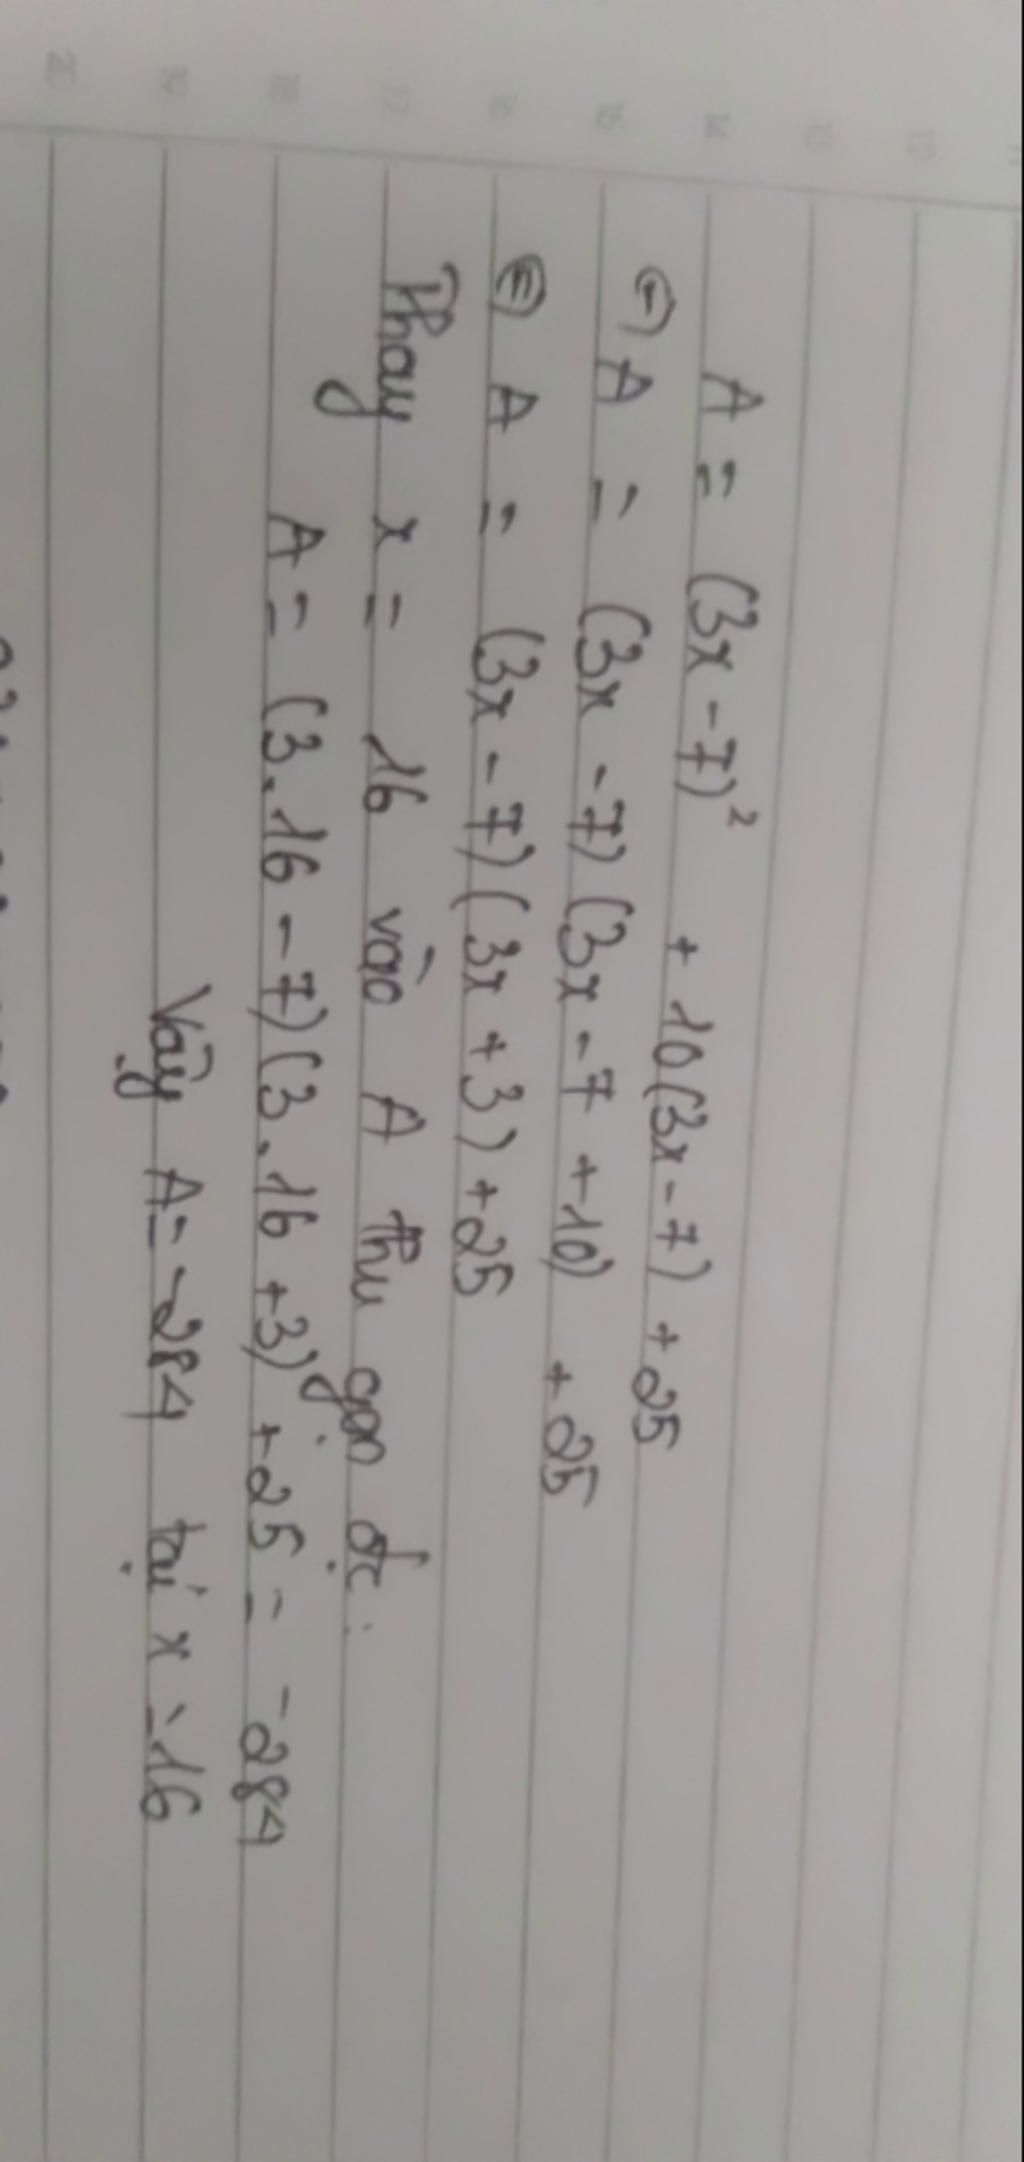 A = (3x - 7)² + 10(3x - 7) + 25
(=) A = (3x - 7)(3x - 7 + 10) + 25
(=) A = (3x - 7)(3x + 3) + 25
Thay x = 16 vào A thu gọn đc:
A = (3.16 - 7)(3.16 + 3) + 25 = -284
Vậy A = -284 tại x = 16